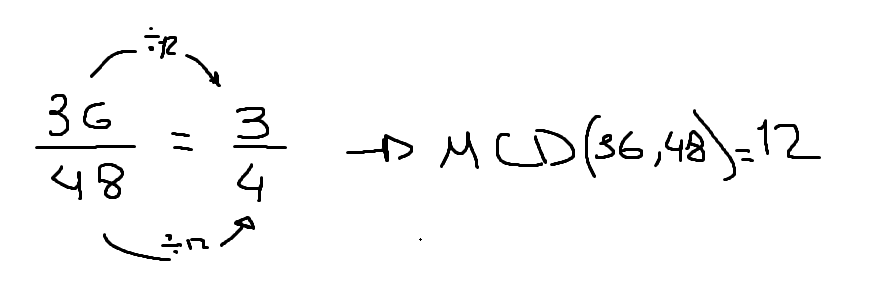 ÷12
36/48 = 3/4 → MCD(36,48)=12
÷12